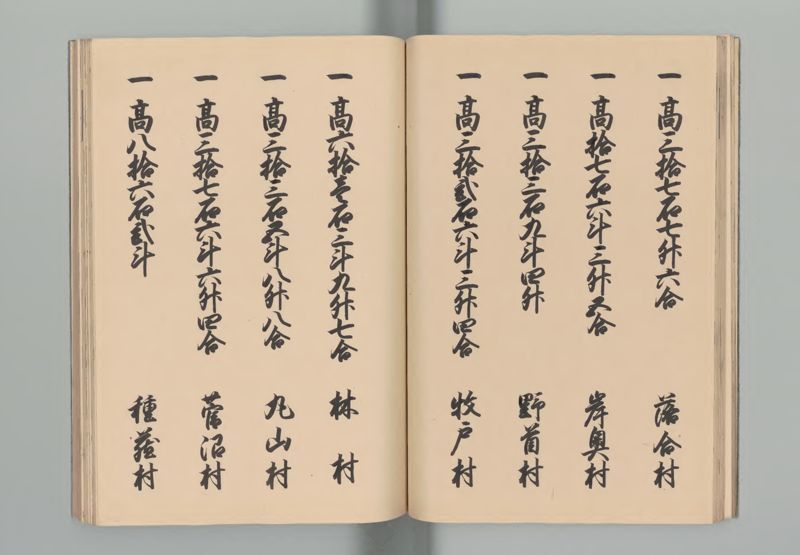 一 高三拾七石七升六合 落合村
一 高拾七石六斗三升五合 岸奥村
一 高三拾三石九斗四升 野首村
一 高三拾弐石六斗三升四合 牧戸村
一 高六拾壱石三斗九升七合 林村
一 高三拾三石五斗八升八合 丸山村
一 高三拾七石六斗六升四合 菅沼村
一 高八拾六石弐斗 種蔵村